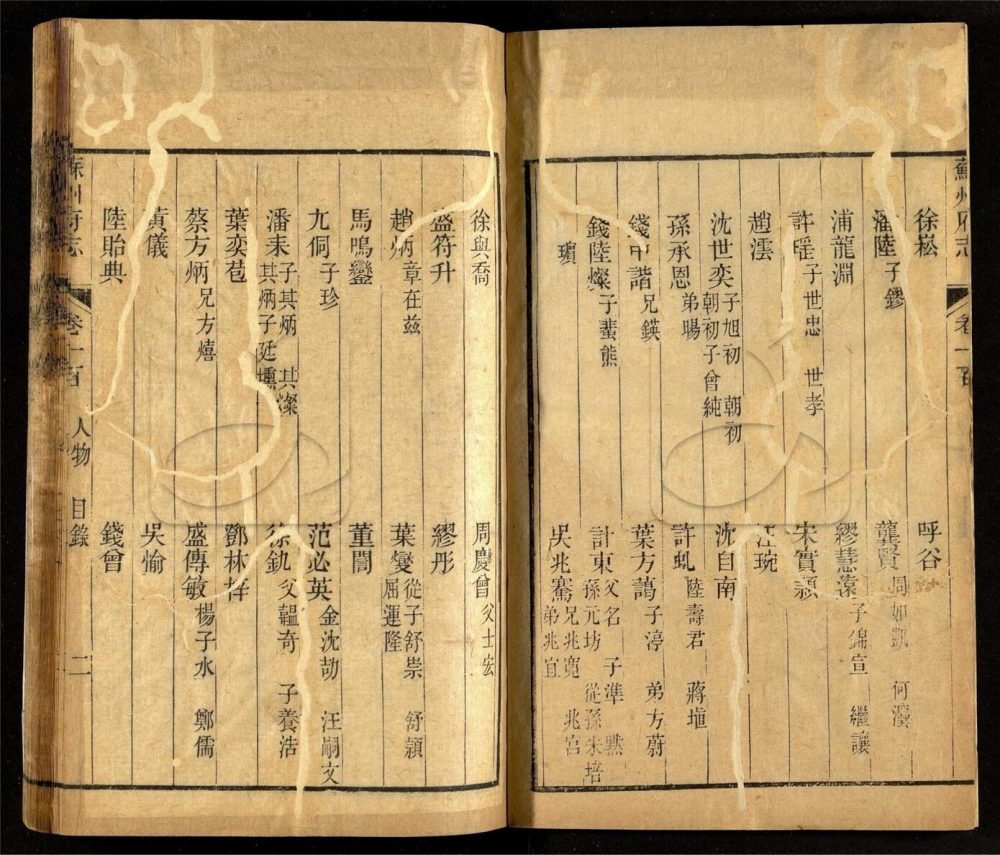 蘇州府志 卷一百
徐崧 呼谷
潘陸 子鏐 龔賢 周如凱 何
浦龍淵 繆慧遠 子錦宣 繼讓
許瑶 子世忠 世孝 宋實穎
趙澐 汪琬
沈世奕 子旭初 朝初 朝初子曾純 沈自南
孫承恩 弟暘 許虬 陸壽君 蔣埴
錢中諧 兄鍈 葉方藹 子渟 弟方蔚
錢陸燦 子蜚熊 計東 父名 子準 黙 孫元坊 從孫朱培
吳兆騫 兄兆寬 兆宮 弟兆宜
徐與喬 周慶曾 父士宏
盛符升 繆彤
趙炳 章在茲 葉燮 從子舒崇 舒頴 屈運隆
馬鳴鑾 董誾
尢侗 子珍 范必英 金沈劼 汪嗣文
潘耒 子其炳 其燦 其炳子廷壎 徐釚 父韞奇 子養浩
葉奕苞 鄧林梓
蔡方炳 兄方熺 盛傳敏 楊子水 鄭儒
黃儀 吳愉
陸貽典 錢曾
蘇州府志 卷一百 人物 目錄 二